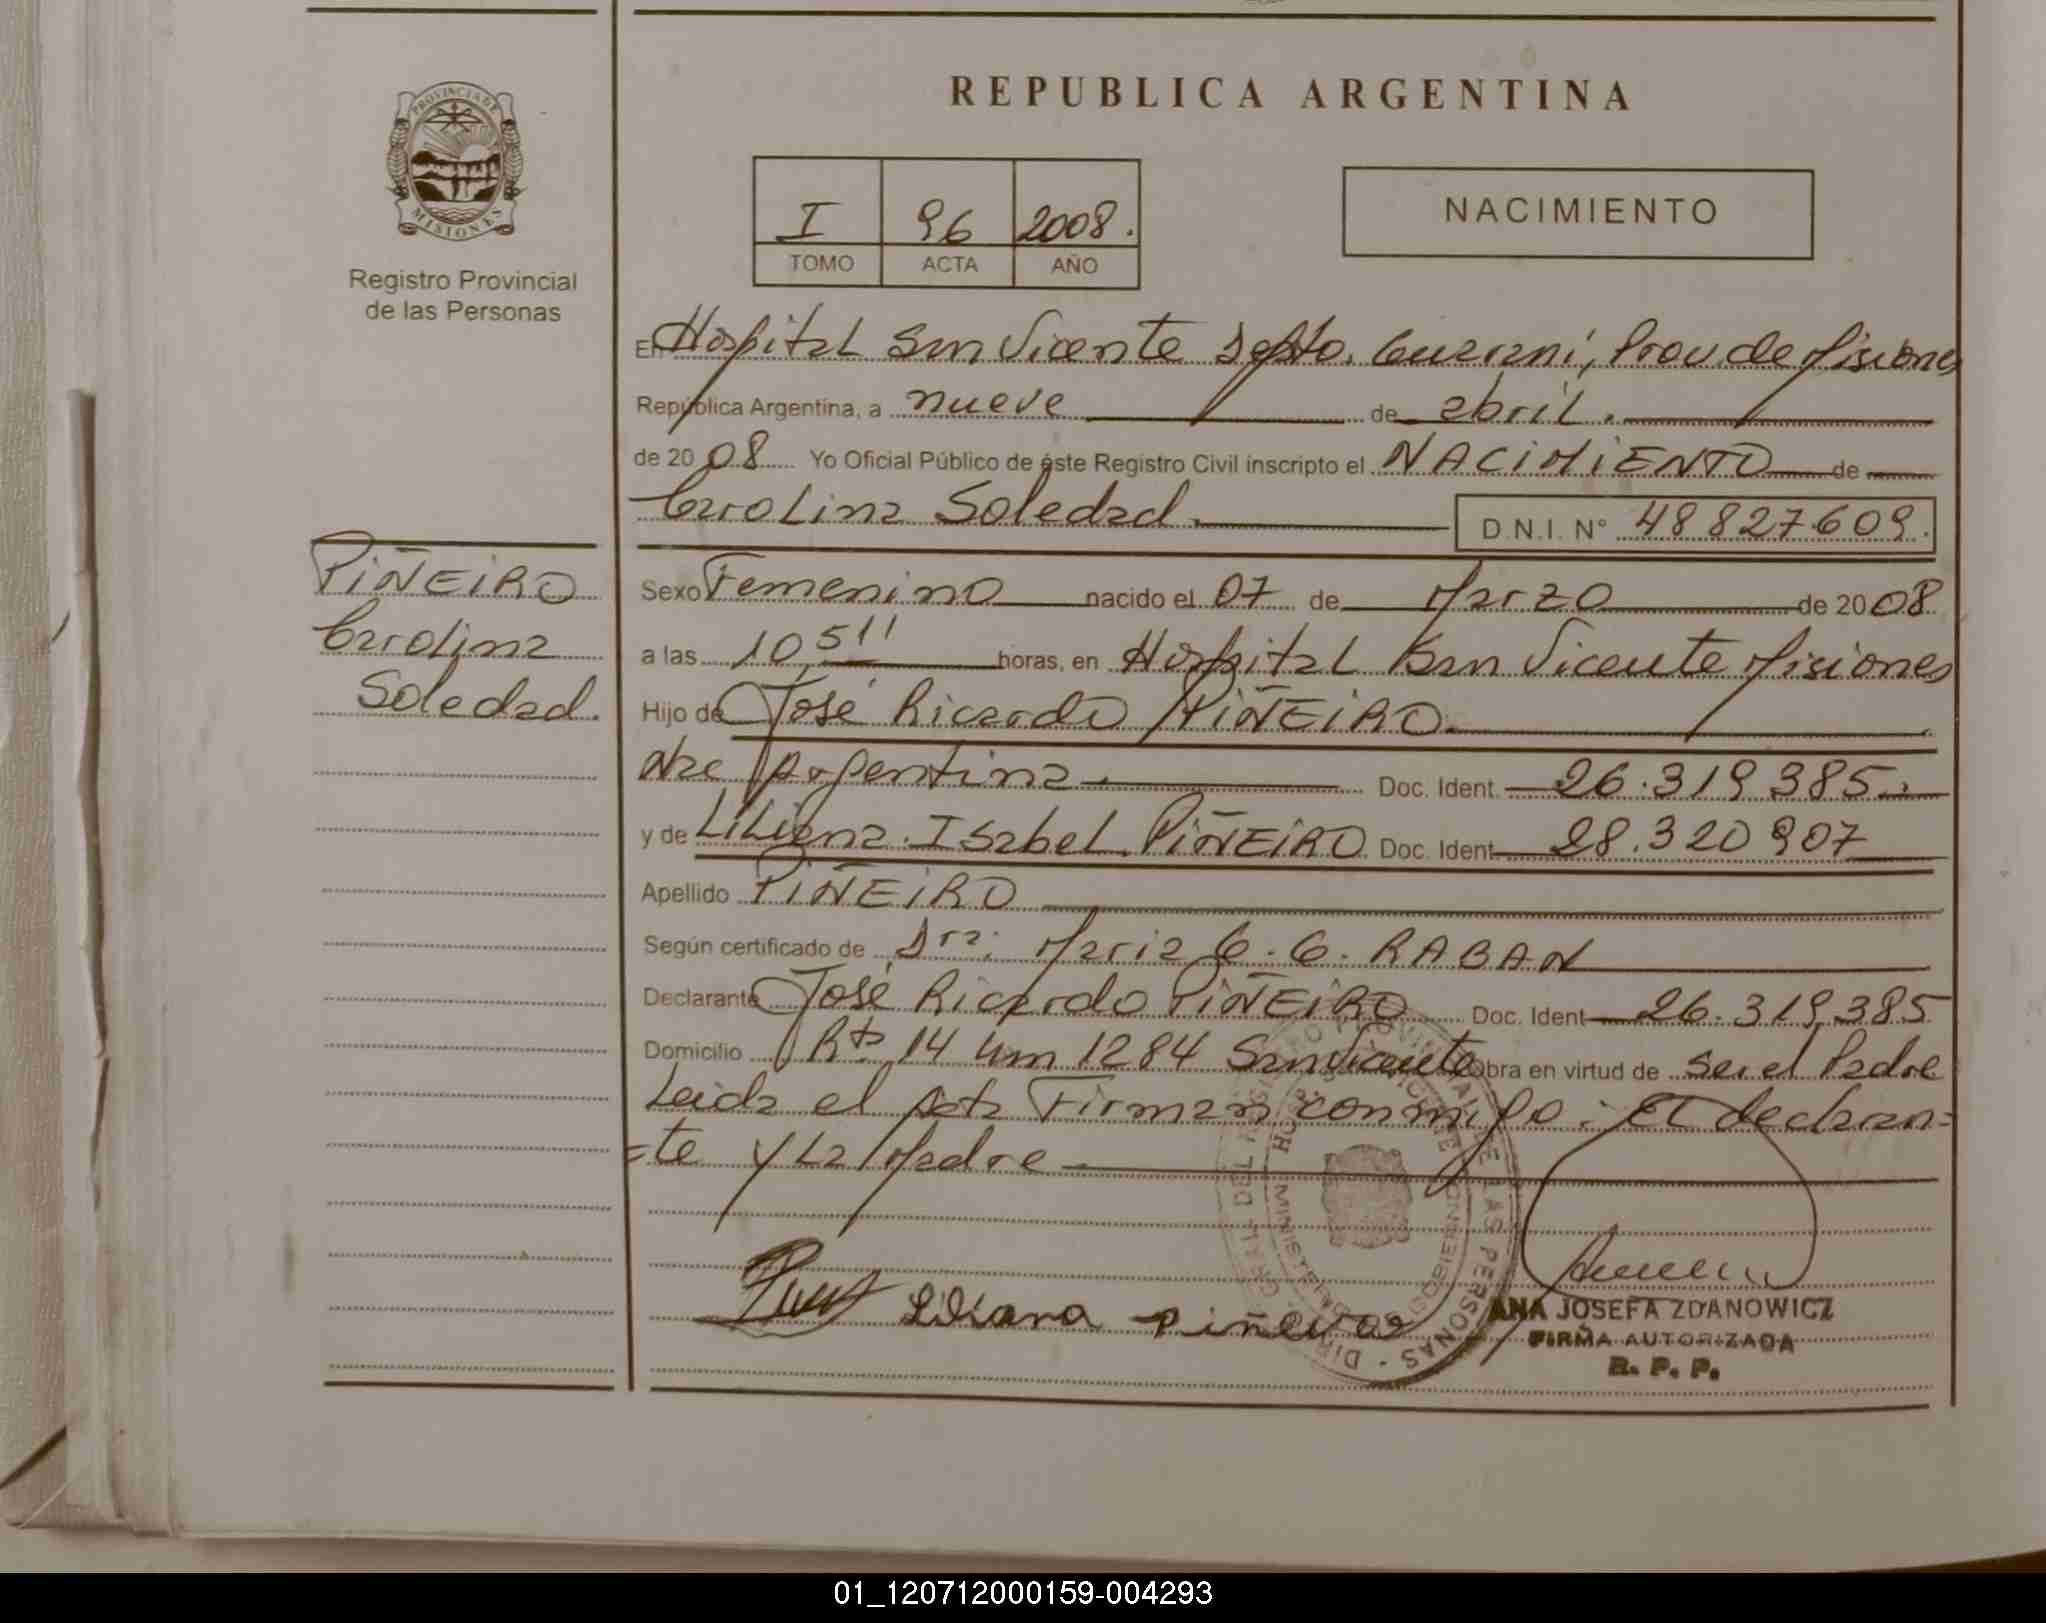 REPUBLICA ARGENTINA
PROVINCIA DE
MISIONES
Registro Provincial
de las Personas
I 96 2008.
TOMO ACTA AÑO
NACIMIENTO
En Hospital San Vicente Depto. Guaraní, Prov. de Misiones
República Argentina, a nueve de abril.
de 2008 Yo Oficial Público de éste Registro Civil inscripto el NACIMIENTO de
Carolina Soledad. D.N.I. N° 48827609.
PIÑEIRO
Carolina
Soledad.
Sexo Femenino nacido el 07 de Marzo de 2008
a las 10,5 horas, en Hospital San Vicente Misiones
Hijo de José Ricardo PIÑEIRO.
Nac Argentina. Doc. Ident. 26.319.385.
y de Liliana Isabel PIÑEIRO Doc. Ident 28.320907
Apellido PIÑEIRO
Según certificado de Dra. Maria G. G. RABAN
Declarante José Ricardo PIÑEIRO Doc. Ident 26.319.385
Domicilio Rta 14 Km 1284 San Vicente obra en virtud de ser el Padre
Leida el Acta Firman conmigo: El declaran=
=te y La Madre
Liliana Piñeiro
ANA JOSEFA ZDANOWICZ
FIRMA AUTORIZADA
R. P. P.
01_120712000159-004293